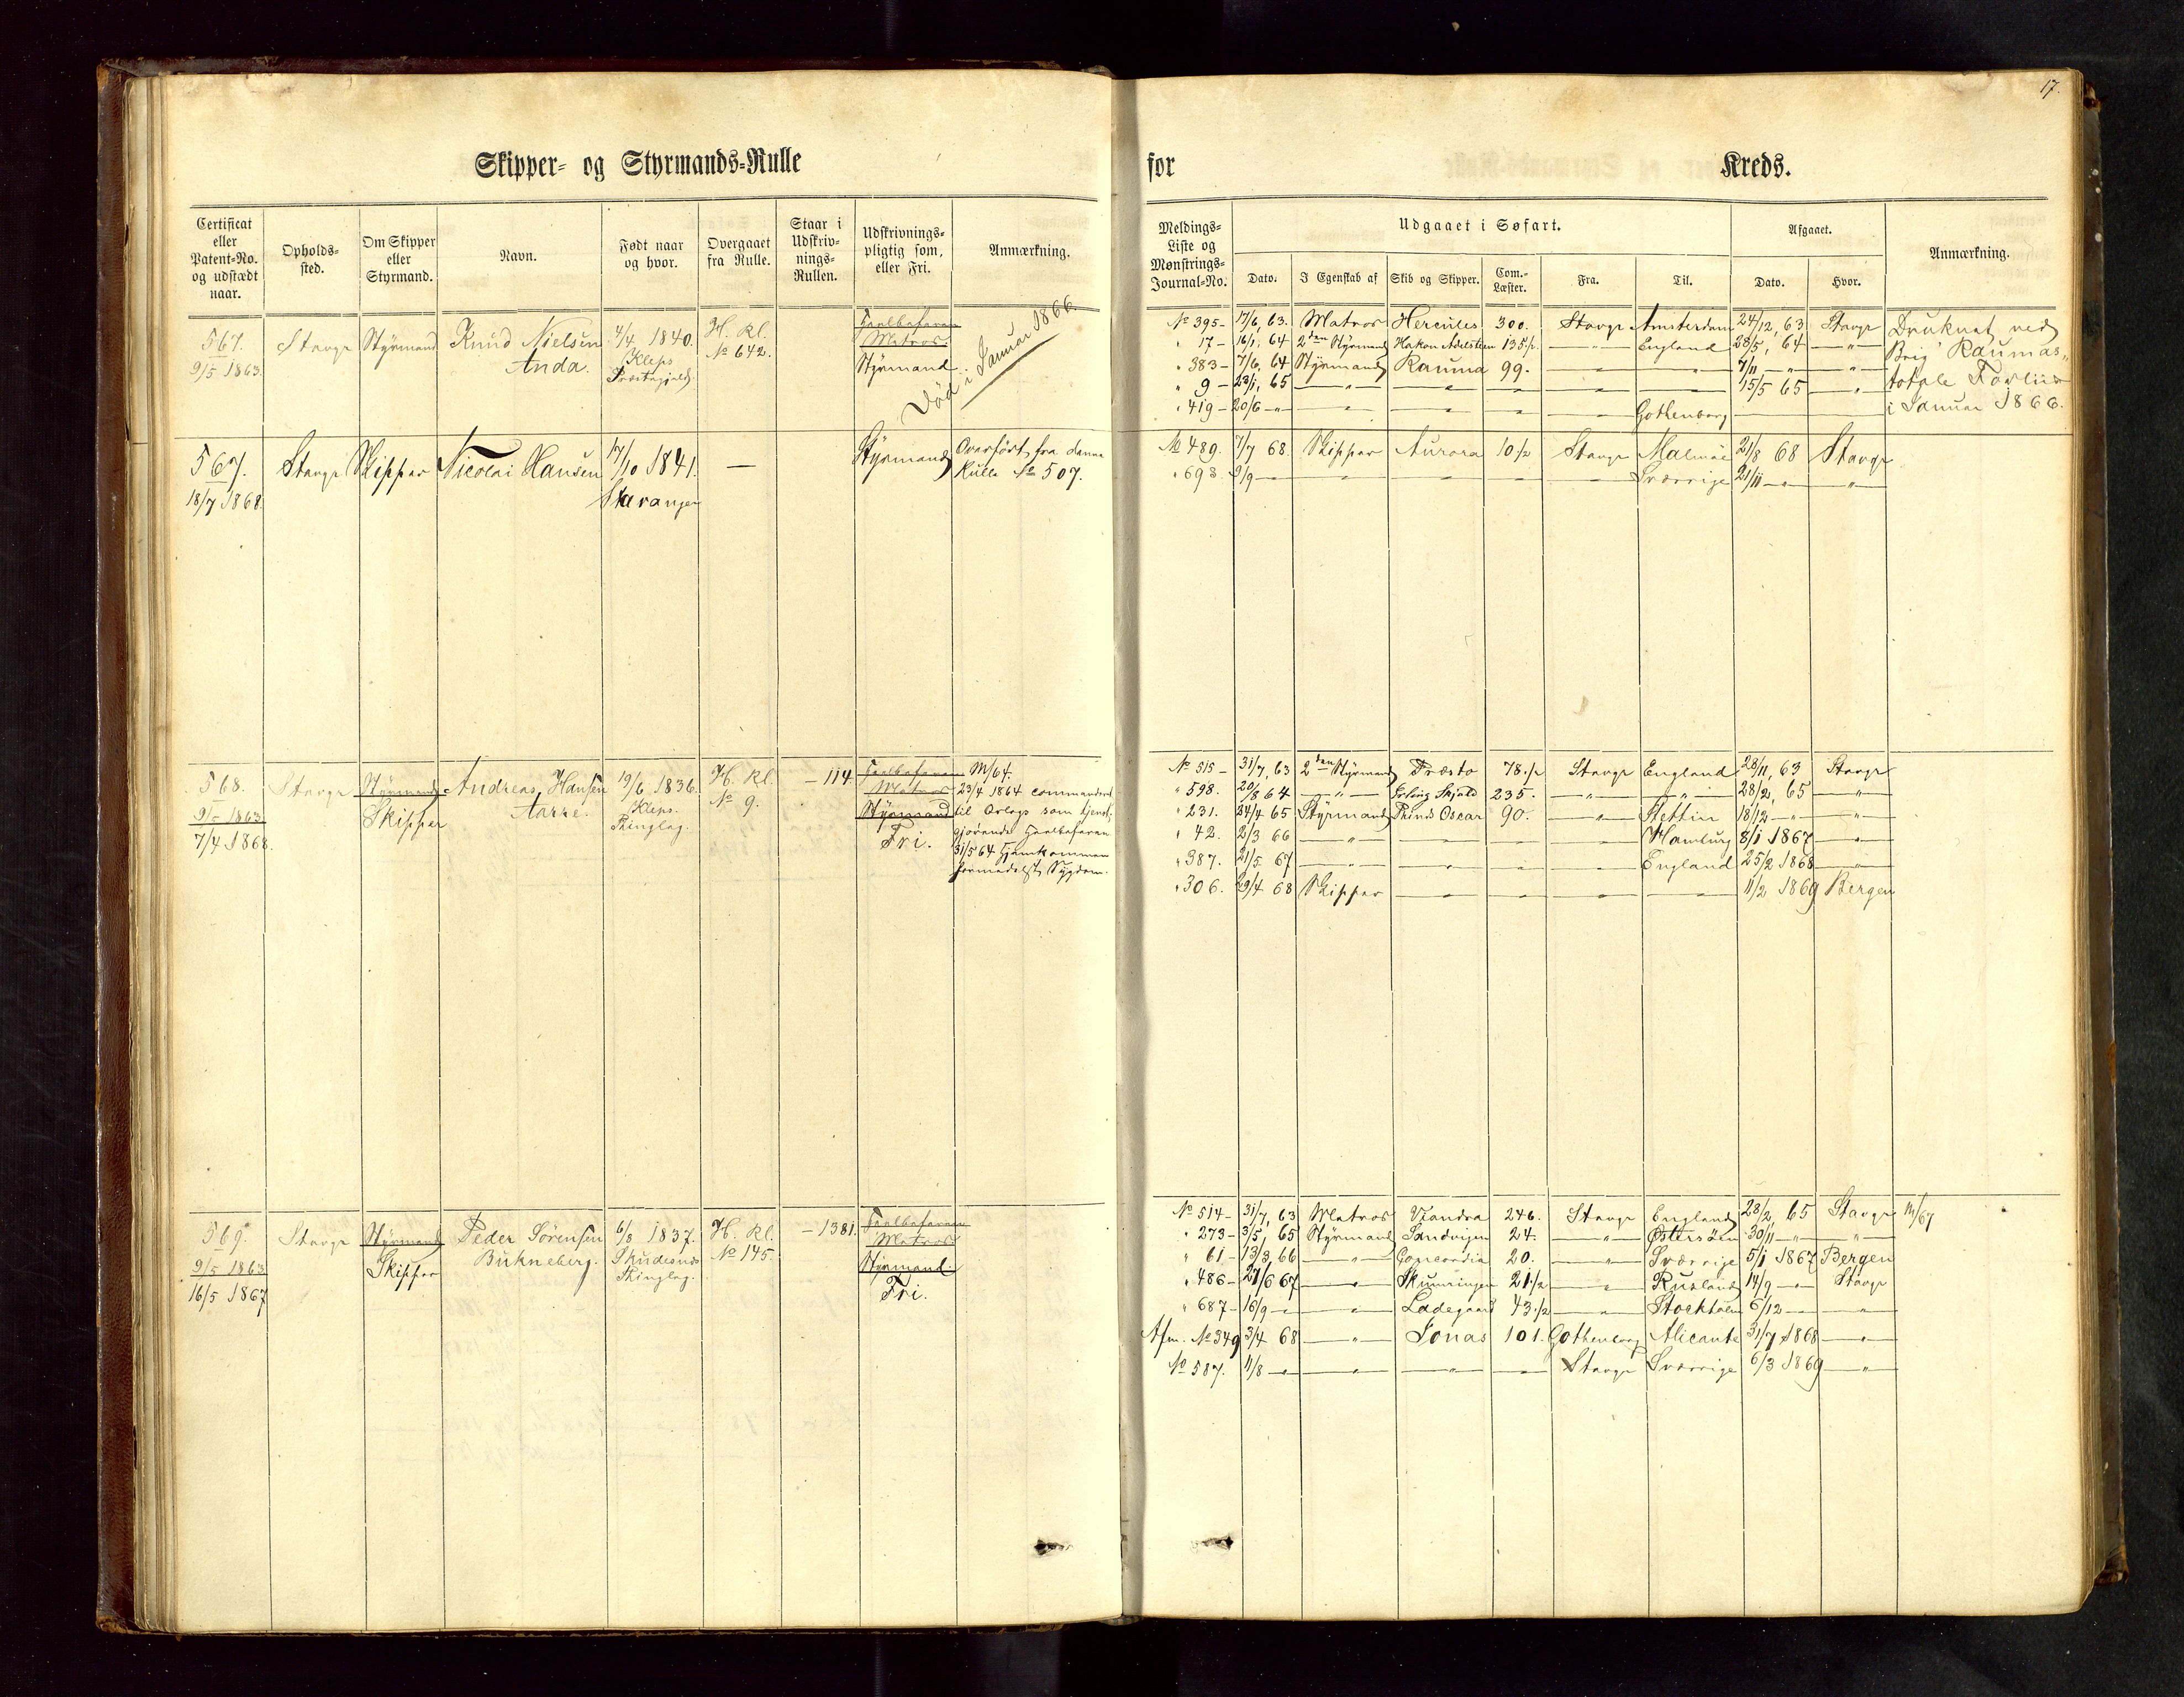 17.
Skipper- og Styrmands-Rulle
for Kreds.
Certificat eller Patent-No. og udstædt naar.
Opholds-sted.
Om Skipper eller Styrmand.
Navn.
Født naar og hvor.
Overgaaet fra Rulle.
Staar i Udskriv-nings-Rullen.
Udskrivnings-pligtig som, eller Fri.
Anmærkning.
Meldings-Liste og Mønstrings-Journal-No.
Udgaaet i Søfart.
Dato. I Egenskab af Skib og Skipper. Com.-Læster. Fra. Til.
Afgaaet.
Dato. Hvor.
Anmærkning.
567. Stavgr Styrmand Knud Nielsen 4/4 1840. H. Rl. Heelbefaren
9/5 1863. Anda. Kleps No 642. Matros
Præstegjeld. Styrmand
Död i Januar 1866.
No 395 17/6, 63. Matros Hercules 300. Stavgr Amsterdam 24/12, 63 Stavgr Druknet ved
" 17 16/1, 64 2den Styrmand Hakon Adelsteen 135 1/2. " England 28/5, 64 " Brig Raumas
" 383 7/6, 64 Styrmand Rauma 99. " " 7/11 " " totale Forliis
" 9 23/1, 65 " " " " " 15/5 65 " i Januar 1866.
" 419 20/6 " " " " " Gothenborg
567. Stavgr Skipper Nicolai Hansen 17/10 1841. — Styrmand Overført fra denne
18/7 1868. Stavanger Rulle No 507.
No 489. 7/7 68. Skipper Aurora 10 1/2 Stavgr Malmöe 21/8 68 Stavgr
" 693. 2/9 " " " " " Sverrige 21/11 " "
568. Stavgr Styrmand Andreas Hansen 19/6 1836. H. Rl. 114. Heelbefaren M/64.
9/5 1863. Skipper Aarre. Kleps No 9. Matros 23/4 1864 commanderet
7/4 1868. Thinglag. Styrmand til Orlogs som tjenst-
Fri. gjørende Heelbefaren
31/5 64 Hjemkommen
formedelst Sygdom.
No 515 31/7, 63 2den Styrmand Præsto 78 1/2 Stavgr England 28/11, 63 Stavgr
" 598. 20/8 64 " Erling Skjald 235. " " 28/2, 65 "
" 231. 24/4 65 Styrmand Prinds Oscar 90. " Stettin 18/12 " "
" 42. 2/3 66 " Hamburg 8/1 1867 "
" 387. 21/5 67 " " " " England 25/2 1868 "
" 306. 29/4 68 Skipper " " " " 11/2 1869 Bergen
569. Stavgr Styrmand Peder Sörensen 6/8 1837. H. Rl. 1381. Heelbefaren
9/5 1863 Skipper Bukneberg. Skudesnes No 145. Matros
16/5 1867 Thinglag. Styrmand
Fri.
No 514 31/7, 63 Matros 246. Stavgr England 28/2, 65 Stavgr M/67
" 273 3/5, 65 Styrmand Sandvigen 24. " Östersöen 30/11 " "
" 61 13/3 66 " Concordia 20. " Sverrige 5/1 1867 Bergen
" 486 27/6 67 " 21 1/2 " Rusland 14/9 " Stavgr
" 687 16/9 " " Ladegaard 43 1/2 " Stockholm 6/12 " "
Afm. No 349 3/4 68 " Jonas 101. Gothenborg Alicante 31/7 1868 "
No 587. 11/8 " " " " Stavgr Sverrige 6/3 1869 "